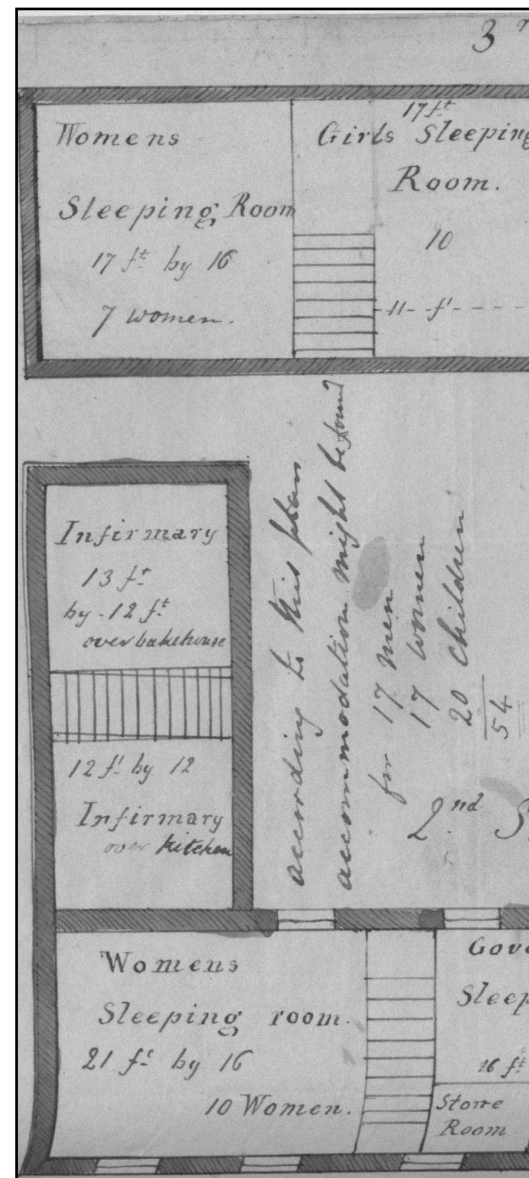 3
Womens
Sleeping Room
17 ft by 16
7 women.
17 ft
Girls Sleeping
Room.
10
11 ft
Infirmary
13 ft
by 12 ft
over bakehouse
12 ft by 12
Infirmary
over kitchen
according to this plan
accommodation might be found
for 17 men
17 women
20 children
54
2nd
Womens
Sleeping room.
21 ft by 16
10 Women.
Gove
Sleep
16 ft
Store
Room